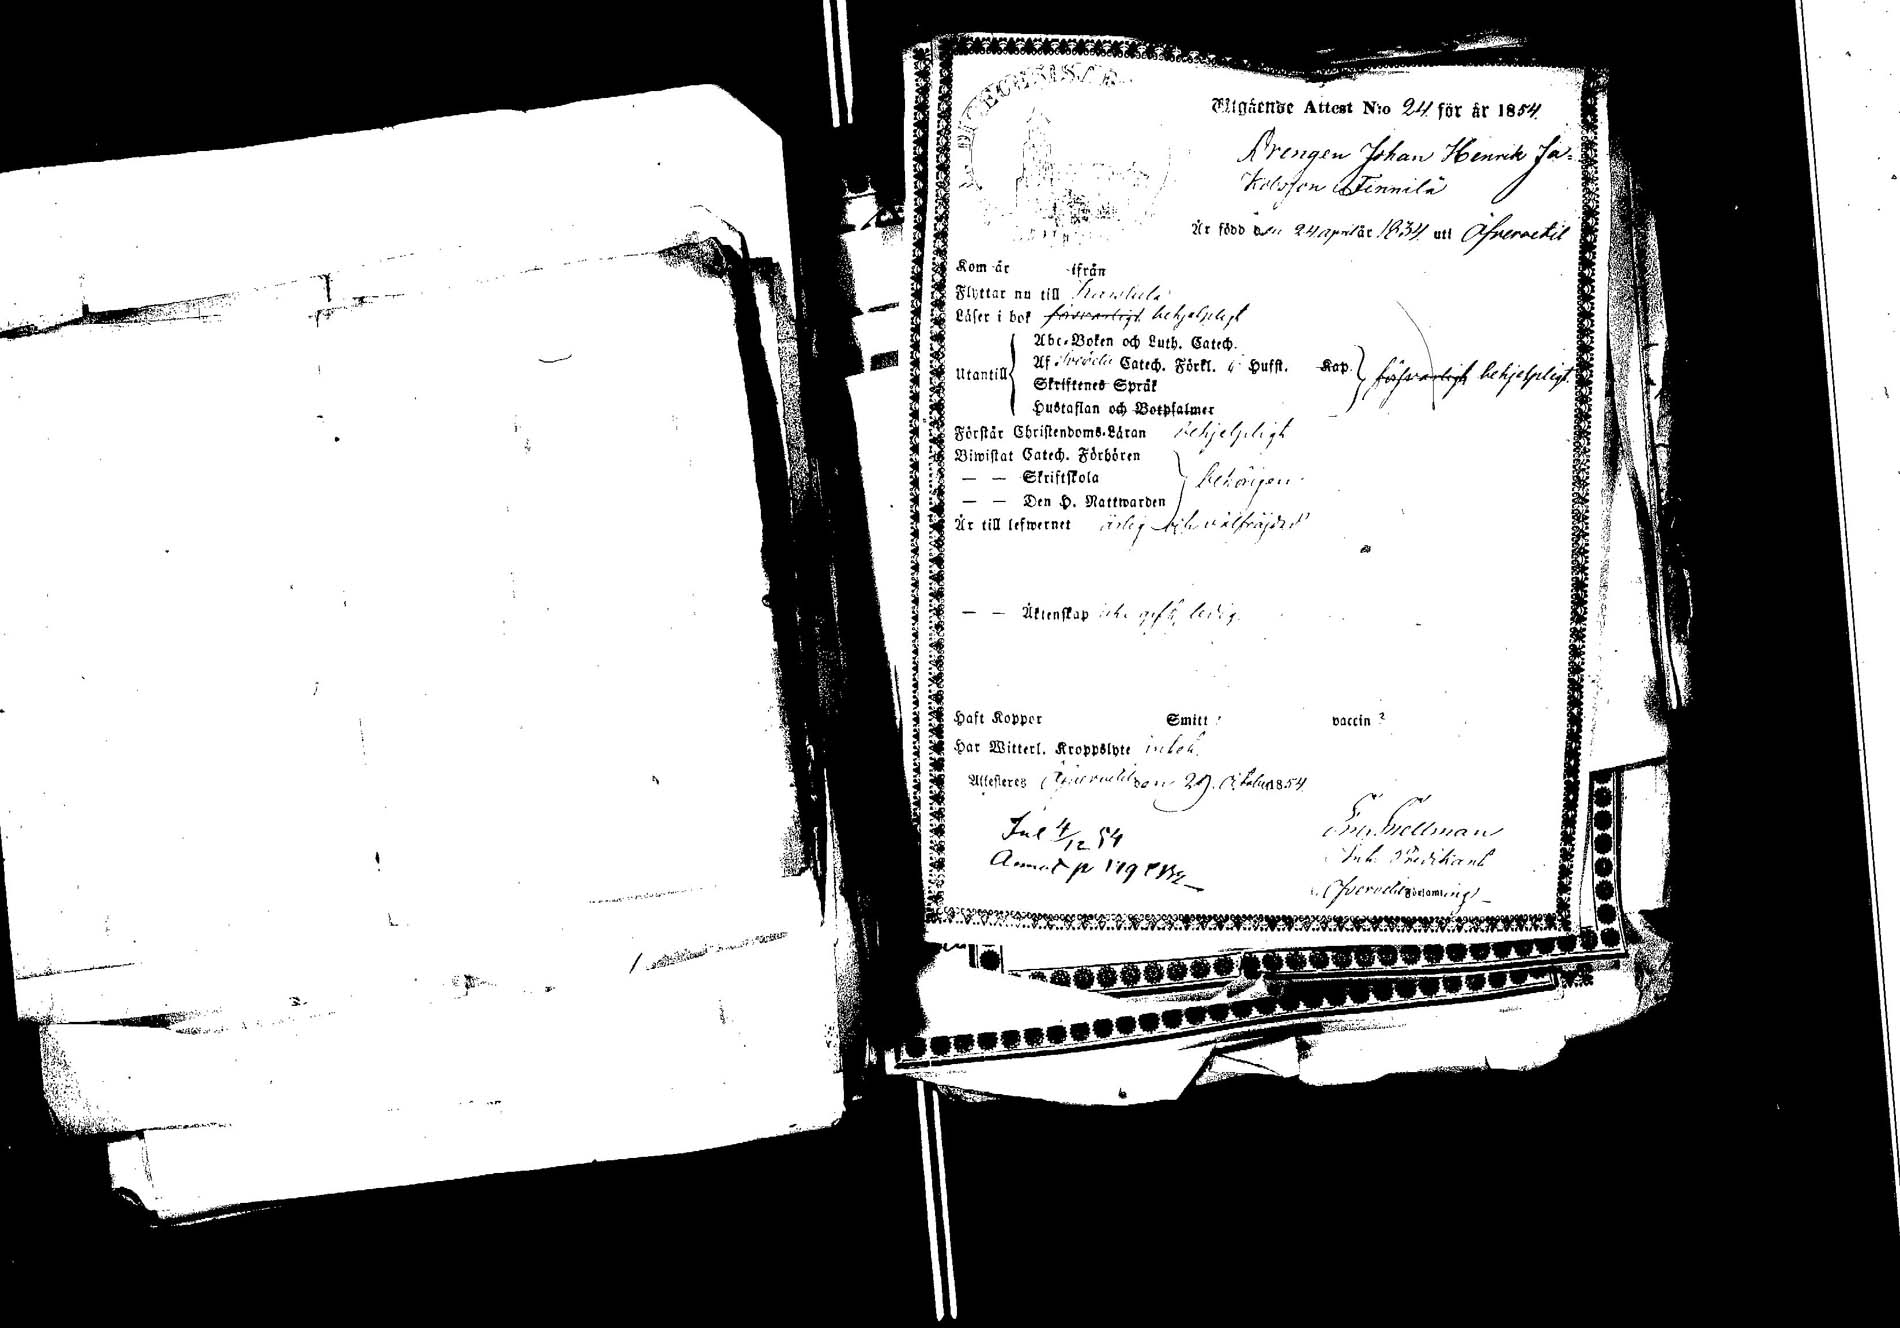 Utgående Attest N:o 24. för år 1854.
Drengen Johan Henrik Ja-
kobsson Tennilä
Är född den 24 april år 1834. uti Öfvervetil
Kom år ifrån
Flyttar nu till Karstula
Läser i bok försvarligt behjelpligt
Abc-Boken och Luth. Catech.
Utantill Af Svebelii Catech. Förkl. Hufst. Kap. försvarligt behjelpligt.
Skriftenes Språk
Hustaflan och Botpsalmer
Förstår Christendoms-Läran behjelpligt
Biwistat Catech. Förhören
— — Skriftskola behörigen
— — Den H. Nattwarden
Är till lefwernet ärlig och välfräjdad
— — Äktenskap icke gift, ledig.
Haft Koppor Smitt ? vaccin ?
Har Witterl. Kroppslyte intet.
Attesteres Öfvervetil den 29. October 1854.
Snellman
Inl 4/12 54
Predikant
p 179
Öfvervetil Församling